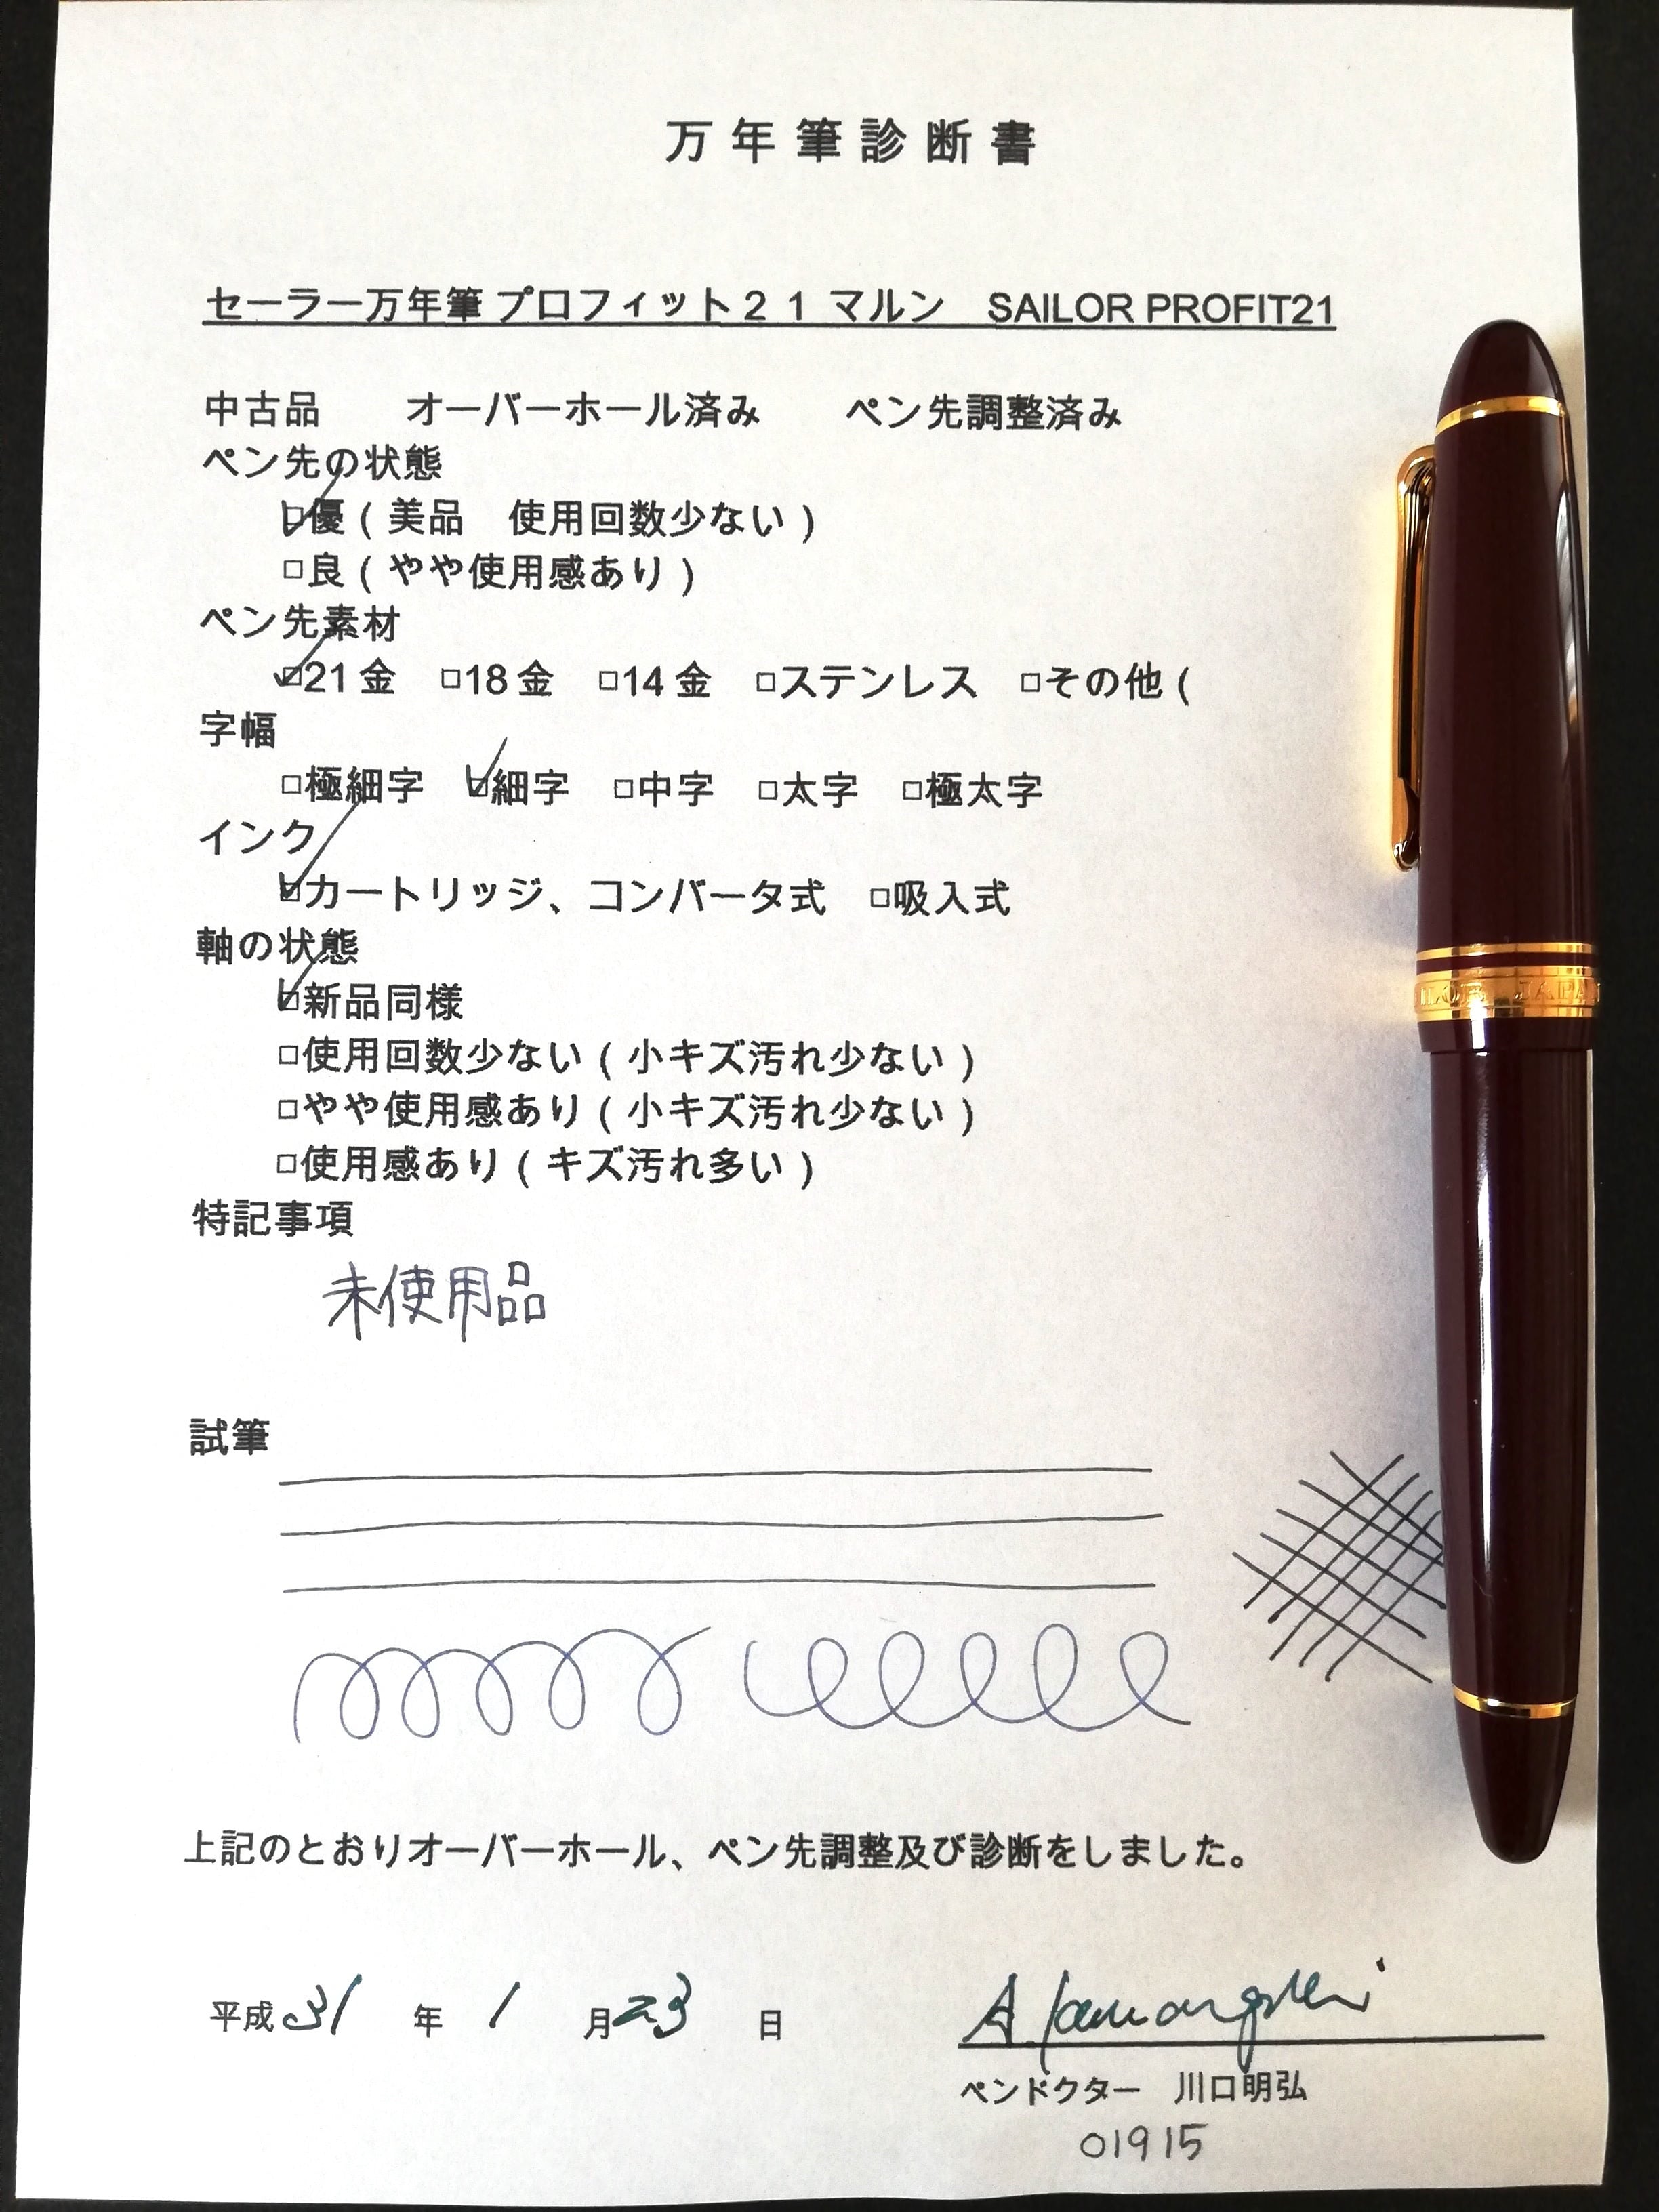 万年筆診断書
セーラー万年筆 プロフィット２１ マルン　SAILOR PROFIT21
中古品　　オーバーホール済み　　ペン先調整済み
ペン先の状態
☑優（美品　使用回数少ない）
□良（やや使用感あり）
ペン先素材
☑21金　□18金　□14金　□ステンレス　□その他（
字幅
□極細字　☑細字　□中字　□太字　□極太字
インク
☑カートリッジ、コンバータ式　□吸入式
軸の状態
☑新品同様
□使用回数少ない（小キズ汚れ少ない）
□やや使用感あり（小キズ汚れ少ない）
□使用感あり（キズ汚れ多い）
特記事項
未使用品
試筆
上記のとおりオーバーホール、ペン先調整及び診断をしました。
平成31年1月23日
ペンドクター　川口明弘
01915